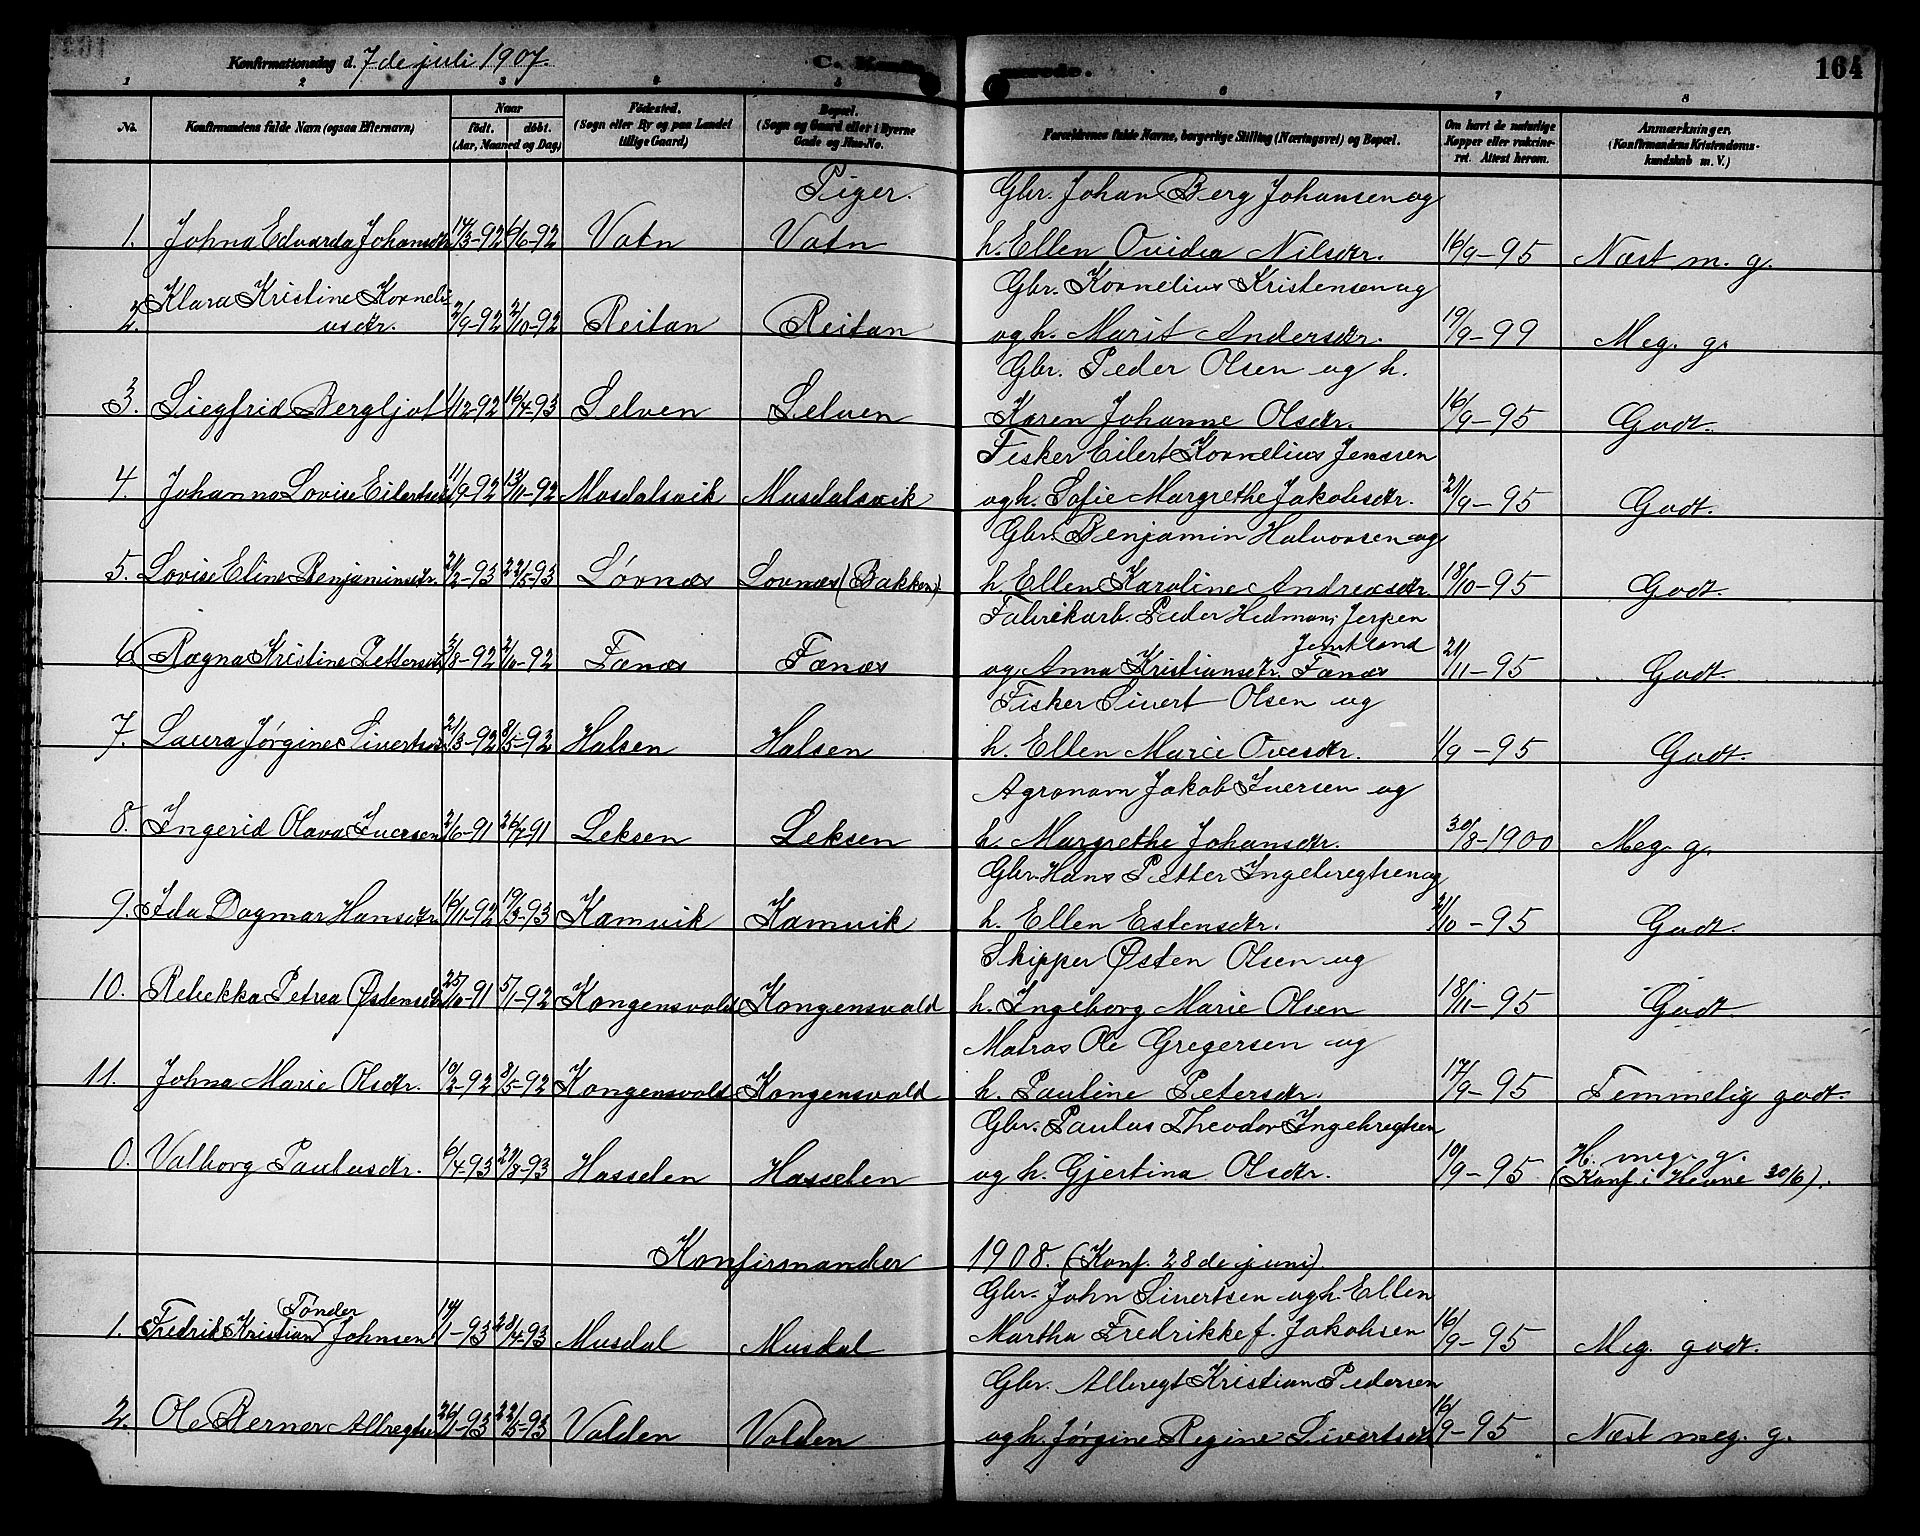 Konfirmationsdag d. 7de juli 1907. C. Konfir
merede. 164
1 2 3 4 5 6 7 8
No. Konfirmandens fulde Navn (ogsaa Efternavn) Naar født. døbt. (Aar, Maaned og Dag) Fødested. (Sogn eller By og paa Landet tillige Gaard) Bopæl. (Sogn og Gaard eller i Byerne Gade og Hus-No. Forældrenes fulde Navne, borgerlige Stilling (Næringsvei) og Bopæl. Om havt de naturlige Kopper eller vakcineret. Attest herom. Anmærkninger, (Konfirmandens Kristendomskundskab m. V.)
Piger. Gbr. Johan Berg Johansen og
1. Johna Edvarda Johansdtr 17/3-92 6/6-92 Vatn Vatn h. Ellen Ovidia Nilsdtr. 16/9-95 Næst m. g.
Klara Kristine Korneli- Gbr. Kornelius Kristensen og
2. usdtr. 2/9-92 2/10-92 Reitan Reitan og h. Marit Andersdtr. 19/9-99 Meg. g.
Gbr. Peder Olsen og h.
3. Siegfrid Bergljot 1/12-92 16/4-93 Selven Selven Karen Johanne Olsdtr. 16/9-95 Godt.
Fisker Eilert Kornelius Jensen
4. Johanna Lovise Eilertsdtr 11/9-92 13/11-92 Musdalsvik Musdalsvik og h. Sofie Margrethe Jakobsdtr. 21/9-95 Godt.
Gbr. Benjamin Halvorsen og
5. Lovise Eline Benjaminsdtr. 21/2-93 22/5-93 Løvnæs Lovnæs (Bakken) h. Ellen Karoline Andreasdtr. 18/10-95 Godt.
Fabrikarb. Peder Hedman, Jerpen
Jemtland
6. Ragna Kristine Pettersdtr 3/8-92 2/10-92 Fænæs Fænæs og Anna Kristiansdtr. Fænæs 21/11-95 Godt.
Fisker Sivert Olsen og
7. Laura Jørgine Sivertsdtr 21/3-92 8/5-92 Halsen Halsen h. Ellen Marie Ovesdtr. 1/9-95 Godt.
Agronom Jakob Iversen og
8. Ingerid Olava Iversen 2/6-91 26/7-91 Leksen Leksen h. Margrethe Johansdtr. 30/8-1900 Meg. g.
Gbr. Hans Petter Ingebregtsen og
9. Ida Dagmar Hansdtr 16/11-92 19/3-93 Kamvik Kamvik h. Ellen Estensdtr. 21/10-95 Godt.
Skipper Østen Olsen og
10. Rebekka Petrea Østensdtr 25/10-91 5/1-92 Kongensvold Kongensvold h. Ingeborg Marie Olsen 18/11-95 Godt
Matros Ole Gregersen og
11. Johna Marie Olsdtr. 10/2-92 8/5-92 Kongensvold Kongensvold h. Pauline Petersdtr. 17/9-95 Temmelig godt.
Gbr. Paulus Theodor Ingebregtsen
0. Valborg Paulusdtr. 6/4-93 27/8-93 Hasselen Hasselen og h. Gjertina Olsdtr. 10/9-95 H. meg. g.
(Konf. i Hevne 30/6).
Konfirmander 1908. (Konf. 28de juni).
Tønder Gbr. John Sivertsen og h. Ellen
1. Fredrik Kristian Johnsen 14/1-93 28/4-93 Musdal Musdal Martha Fredrikke f. Jakobsen 16/9-95 Meg. godt.
Gbr. Albregt Kristian Pedersen
2. Ole Berner Albregtsen 26/1-93 22/5-93 Valden Valden og h. Jørgine Regine Sivertsdtr 16/9-95 Næst meg. g.